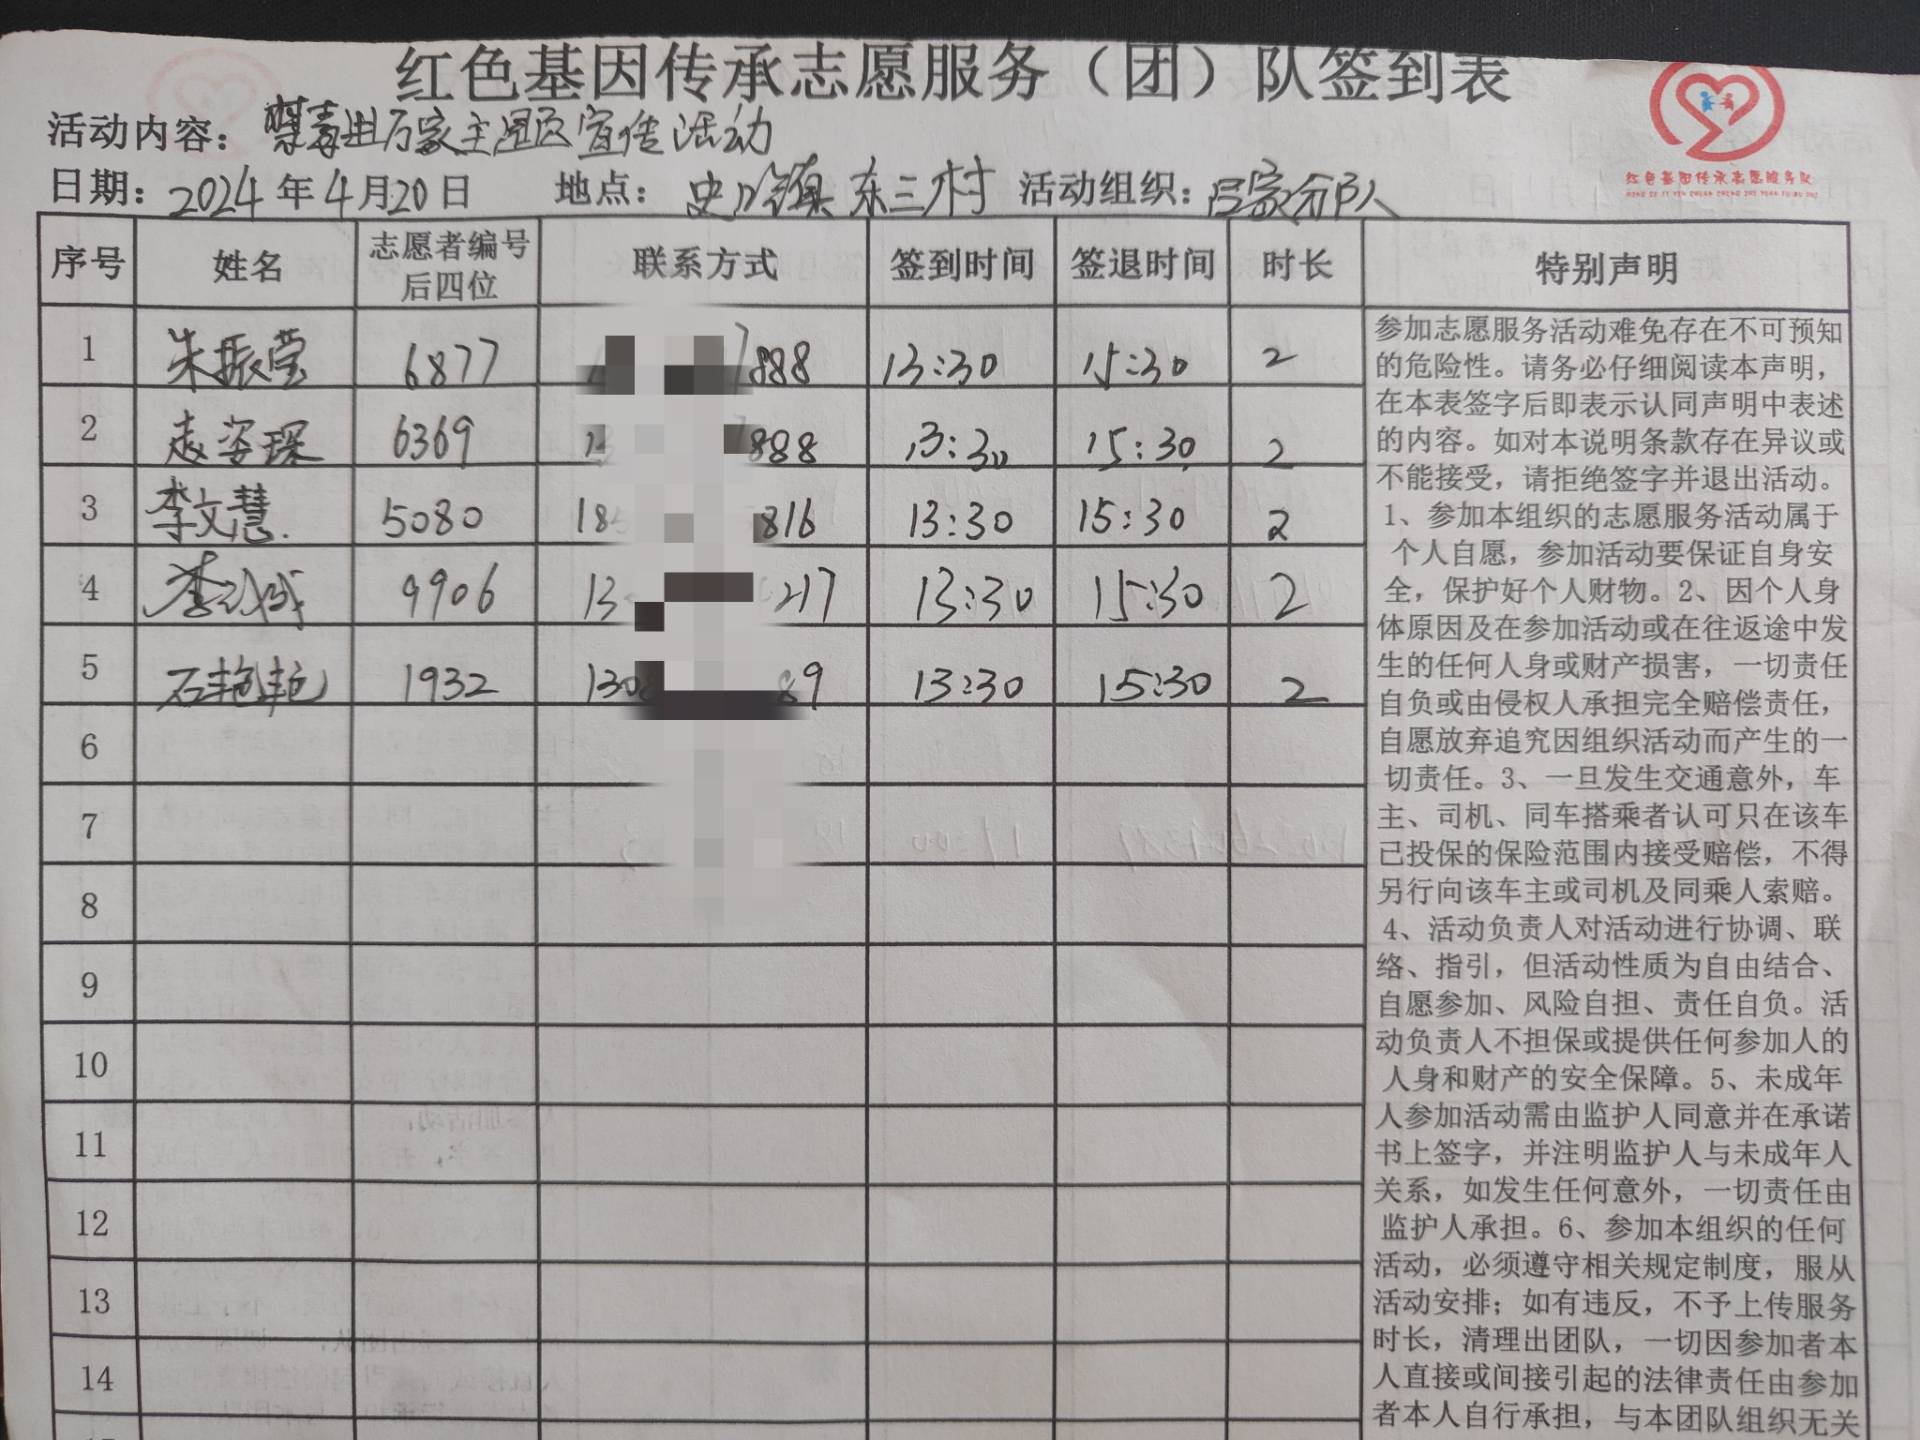 红色基因传承志愿服务（团）队签到表
活动内容：禁毒进万家主题宣传活动
日期：2024年4月20日 地点：史口镇东三村 活动组织：吕家分队
红色基因传承志愿服务队
序号 姓名 志愿者编号后四位 联系方式 签到时间 签退时间 时长 特别声明
1 朱振莹 6877 7888 13:30 15:30 2
2 袁姿琛 6369 888 13:30 15:30 2
3 李文慧 5080 18 816 13:30 15:30 2
4 李 9906 13 217 13:30 15:30 2
5 石艳艳 1932 1308 89 13:30 15:30 2
6
7
8
9
10
11
12
13
14
参加志愿服务活动难免存在不可预知
的危险性。请务必仔细阅读本声明，
在本表签字后即表示认同声明中表述
的内容。如对本说明条款存在异议或
不能接受，请拒绝签字并退出活动。
1、参加本组织的志愿服务活动属于
个人自愿，参加活动要保证自身安
全，保护好个人财物。2、因个人身
体原因及在参加活动或在往返途中发
生的任何人身或财产损害，一切责任
自负或由侵权人承担完全赔偿责任，
自愿放弃追究因组织活动而产生的一
切责任。3、一旦发生交通意外，车
主、司机、同车搭乘者认可只在该车
已投保的保险范围内接受赔偿，不得
另行向该车主或司机及同乘人索赔。
4、活动负责人对活动进行协调、联
络、指引，但活动性质为自由结合、
自愿参加、风险自担、责任自负。活
动负责人不担保或提供任何参加人的
人身和财产的安全保障。5、未成年
人参加活动需由监护人同意并在承诺
书上签字，并注明监护人与未成年人
关系，如发生任何意外，一切责任由
监护人承担。6、参加本组织的任何
活动，必须遵守相关规定制度，服从
活动安排；如有违反，不予上传服务
时长，清理出团队，一切因参加者本
人直接或间接引起的法律责任由参加
者本人自行承担，与本团队组织无关